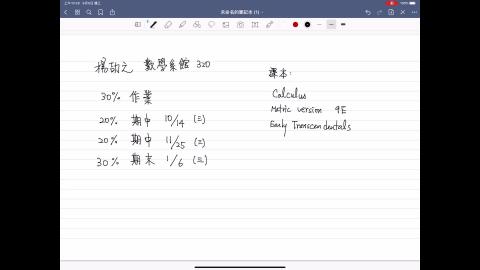 未命名的筆記本 (1)
數學系館 320
30% 作業
20% 期中 10/14 (二)
20% 期中 11/25 (二)
30% 期末 1/6 (二)
課本:
Calculus
Metric version 9E
Early Transcendentals